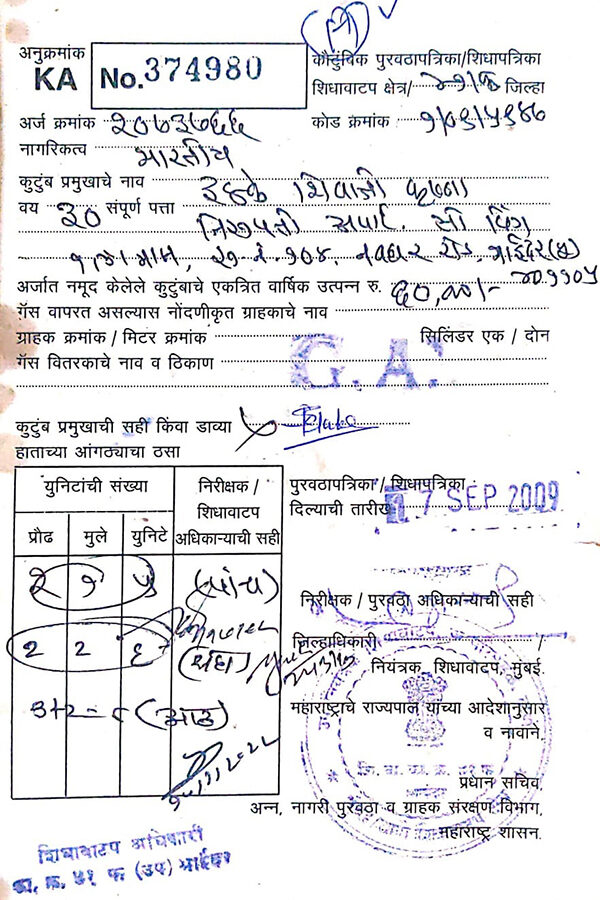 अनुक्रमांक
KA No. 374980
कौटुंबिक पुरवठापत्रिका/शिधापत्रिका
शिधावाटप क्षेत्र/ जिल्हा
अर्ज क्रमांक २०७३७६६ कोड क्रमांक
नागरिकत्व भारतीय
कुटुंब प्रमुखाचे नाव शिवाजी कृष्णा
वय ३० संपूर्ण पत्ता तिरुपती अपार्ट. सी विंग
१ला माळा, रु. नं. १०४, नवघर रोड, भाईंदर (पू)
अर्जात नमूद केलेले कुटुंबाचे एकत्रित वार्षिक उत्पन्न रु. ६०,०००/-
गॅस वापरत असल्यास नोंदणीकृत ग्राहकाचे नाव
ग्राहक क्रमांक / मिटर क्रमांक सिलिंडर एक / दोन
गॅस वितरकाचे नाव व ठिकाण
G.A.
कुटुंब प्रमुखाची सही किंवा डाव्या
हाताच्या आंगठ्याचा ठसा
युनिटांची संख्या
निरीक्षक / शिधावाटप अधिकाऱ्याची सही
प्रौढ मुले युनिटे
२ १ ५ (पांच)
२ २ ६ (सहा)
३+२=८ (आठ)
पुरवठापत्रिका / शिधापत्रिका
दिल्याची तारीख 17 SEP 2009
निरीक्षक / पुरवठा अधिकाऱ्याची सही
जिल्हाधिकारी /
नियंत्रक, शिधावाटप, मुंबई.
महाराष्ट्राचे राज्यपाल यांच्या आदेशानुसार
व नावाने,
प्रधान सचिव,
अन्न, नागरी पुरवठा व ग्राहक संरक्षण विभाग,
महाराष्ट्र शासन.
शिधावाटप अधिकारी
का. क्र. ४१ फ (उप) भाईंदर